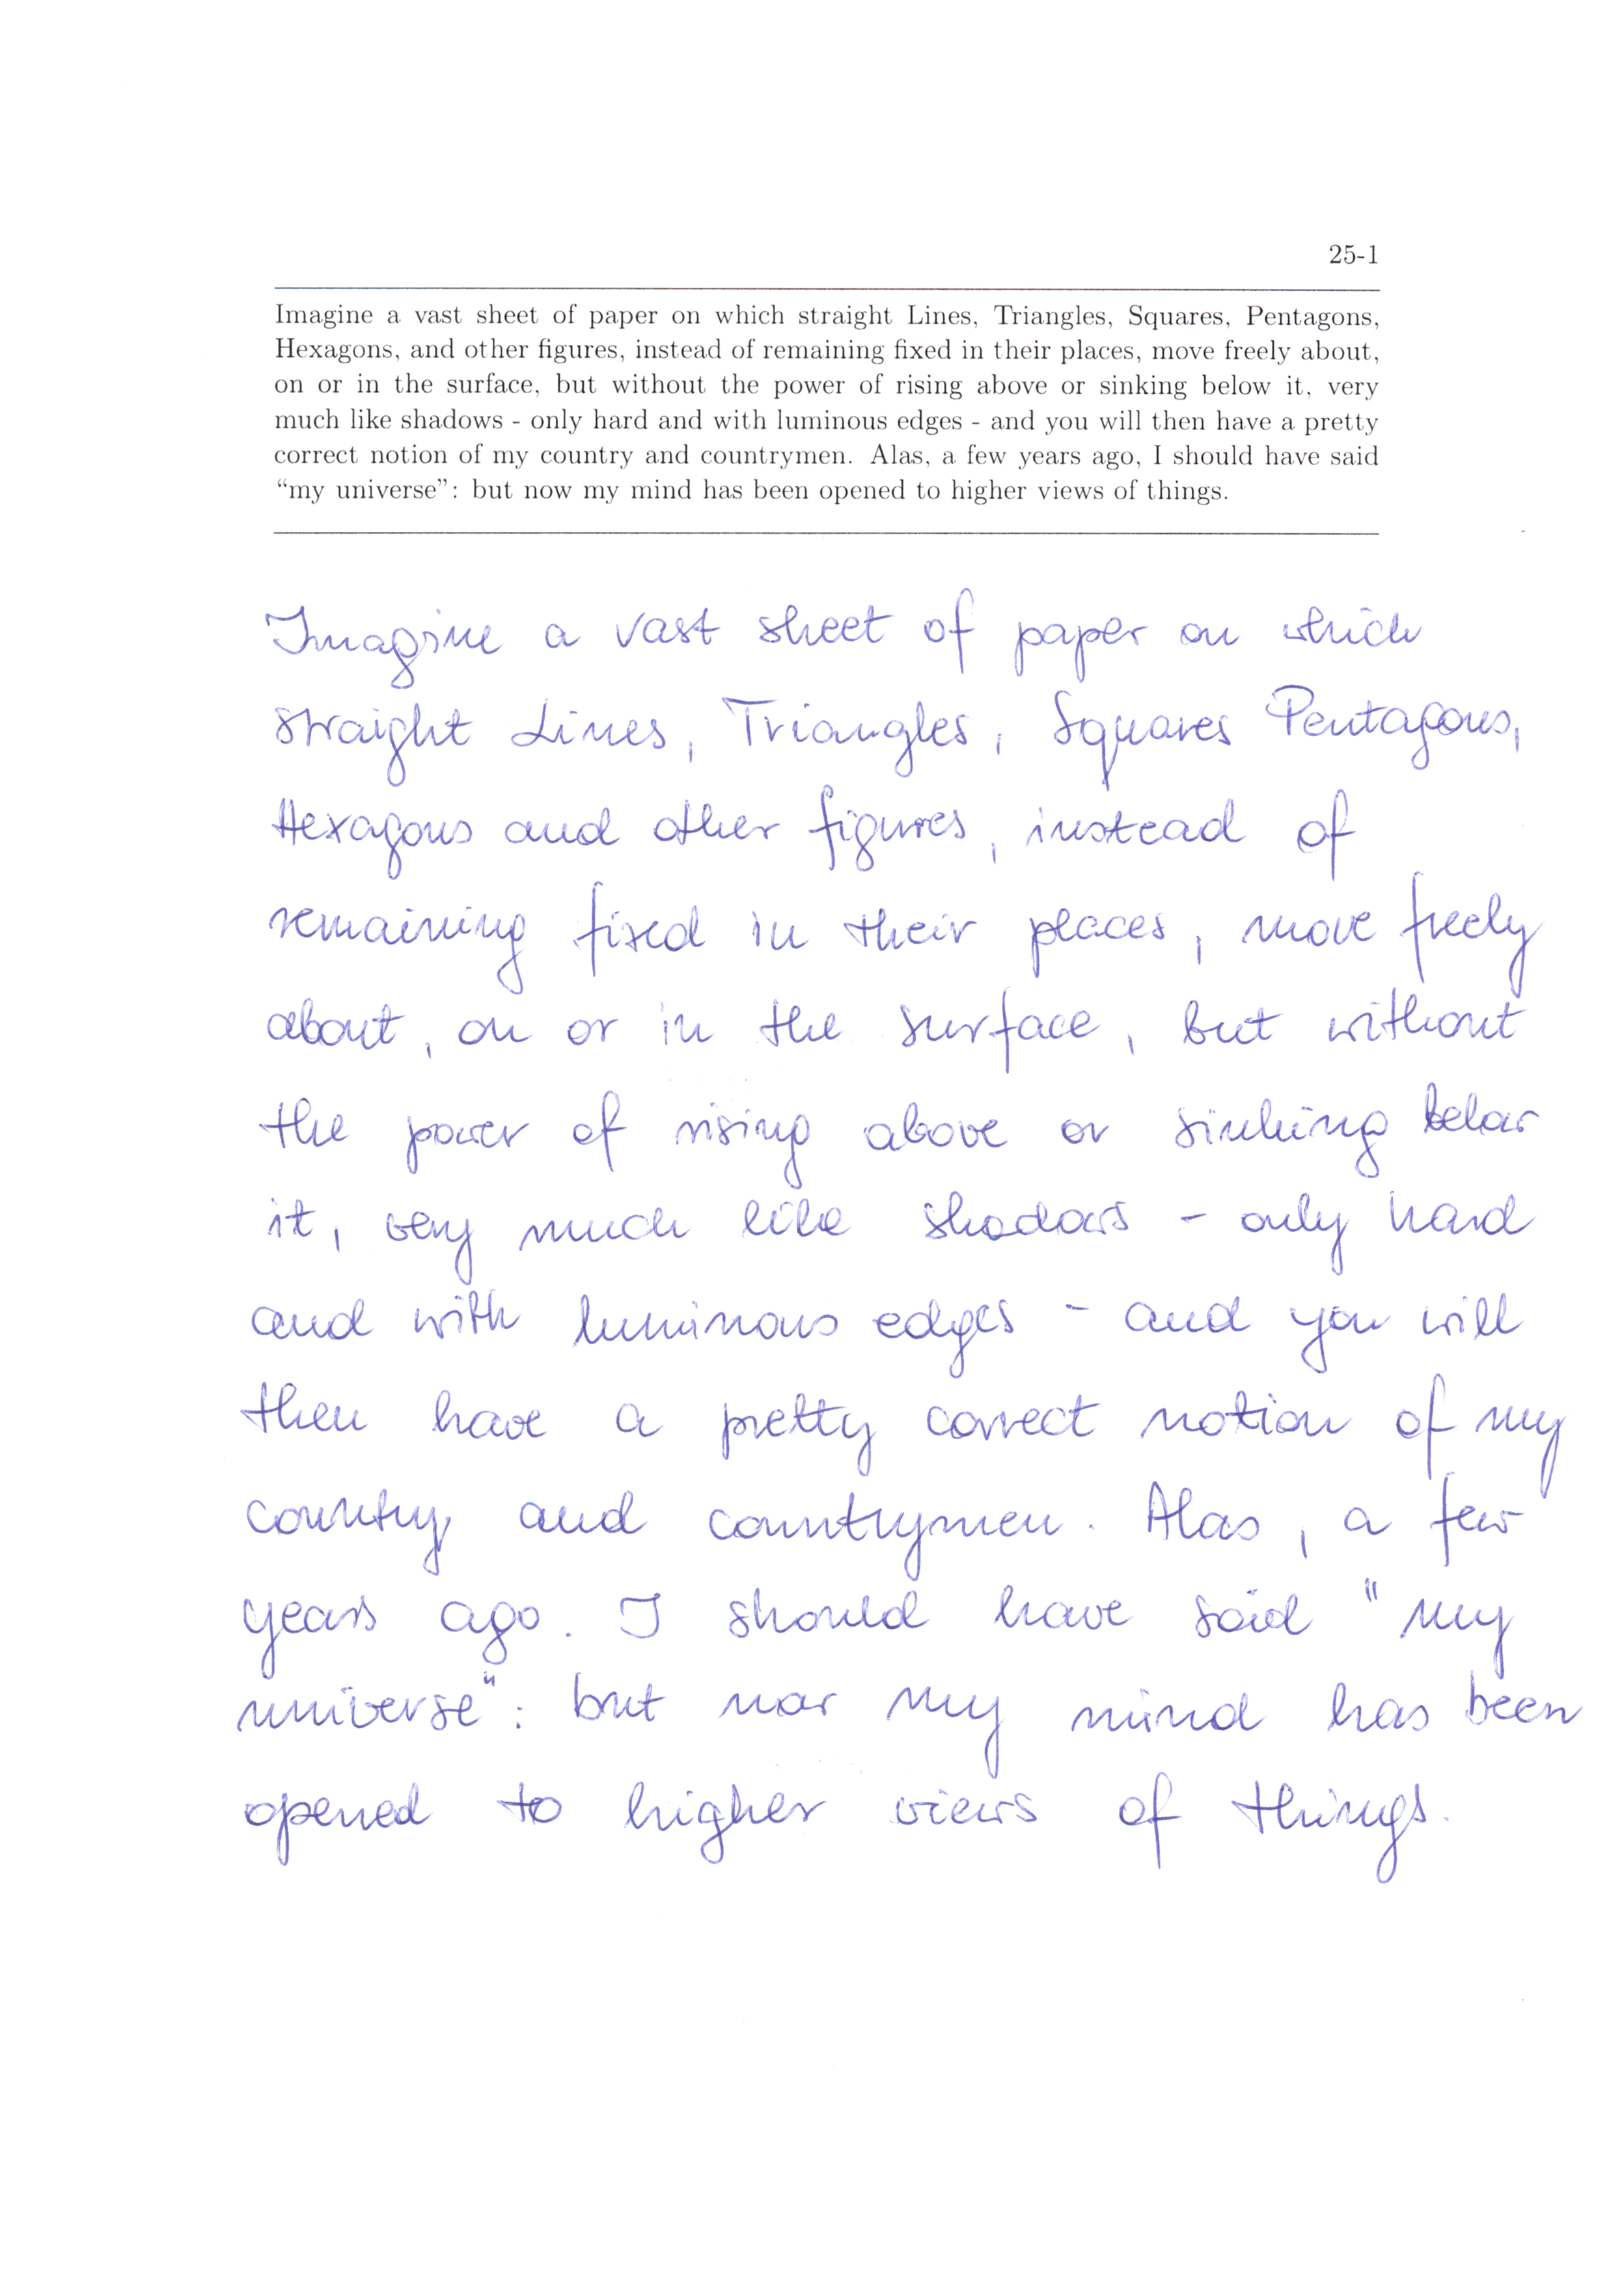 25-1
Imagine a vast sheet of paper on which straight Lines, Triangles, Squares, Pentagons,
Hexagons, and other figures, instead of remaining fixed in their places, move freely about,
on or in the surface, but without the power of rising above or sinking below it, very
much like shadows - only hard and with luminous edges - and you will then have a pretty
correct notion of my country and countrymen. Alas, a few years ago, I should have said
“my universe”: but now my mind has been opened to higher views of things.
Imagine a vast sheet of paper on which
straight Lines, Triangles, Squares Pentagons,
Hexagons and other figures, instead of
remaining fixed in their places, move freely
about, on or in the surface, but without
the power of rising above or sinking below
it, very much like shadows - only hard
and with luminous edges - and you will
then have a pretty correct notion of my
country and countrymen. Alas, a few
years ago. I should have said "my
universe": but now my mind has been
opened to higher views of things.